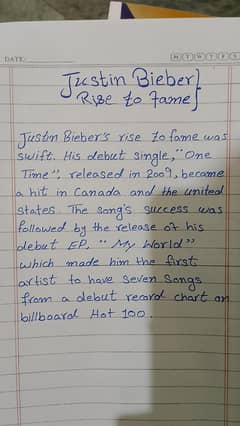 DATE:
M T W T F S
Justin Bieber}
Rise to fame}
Justin Bieber's rise to fame was
swift. His debut single, "One
Time", released in 2009, became
a hit in Canada and the united
states. The song's success was
followed by the release of his
debut EP. "My World"
which made him the first
artist to have seven songs
from a debut record chart on
billboard Hot 100.